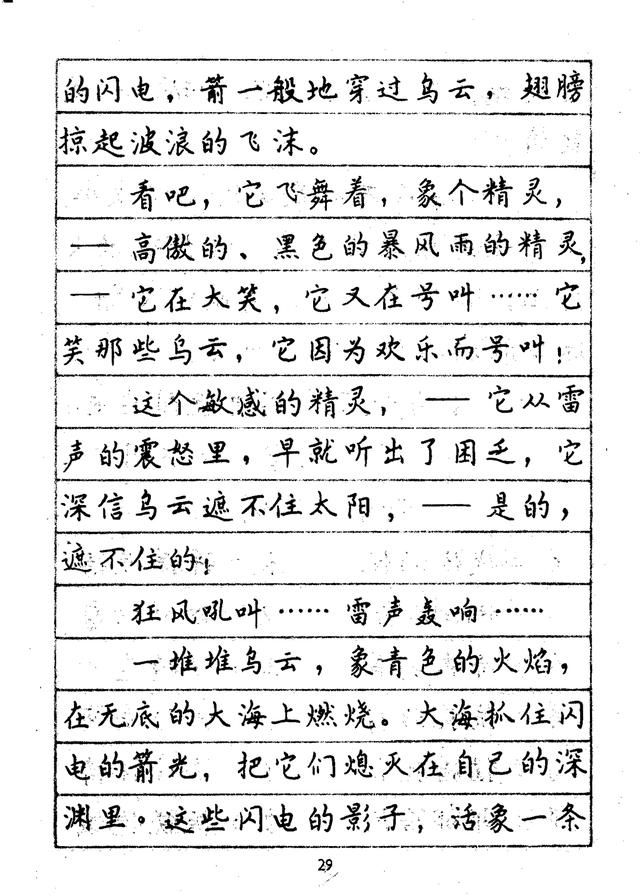 的闪电，箭一般地穿过乌云，翅膀
掠起波浪的飞沫。
看吧，它飞舞着，象个精灵，
—— 高傲的、黑色的暴风雨的精灵，
—— 它在大笑，它又在号叫 …… 它
笑那些乌云，它因为欢乐而号叫！
这个敏感的精灵，—— 它从雷
声的震怒里，早就听出了困乏，它
深信乌云遮不住太阳，—— 是的，
遮不住的！
狂风吼叫 …… 雷声轰响 ……
一堆堆乌云，象青色的火焰，
在无底的大海上燃烧。大海抓住闪
电的箭光，把它们熄灭在自己的深
渊里。这些闪电的影子，活象一条
29